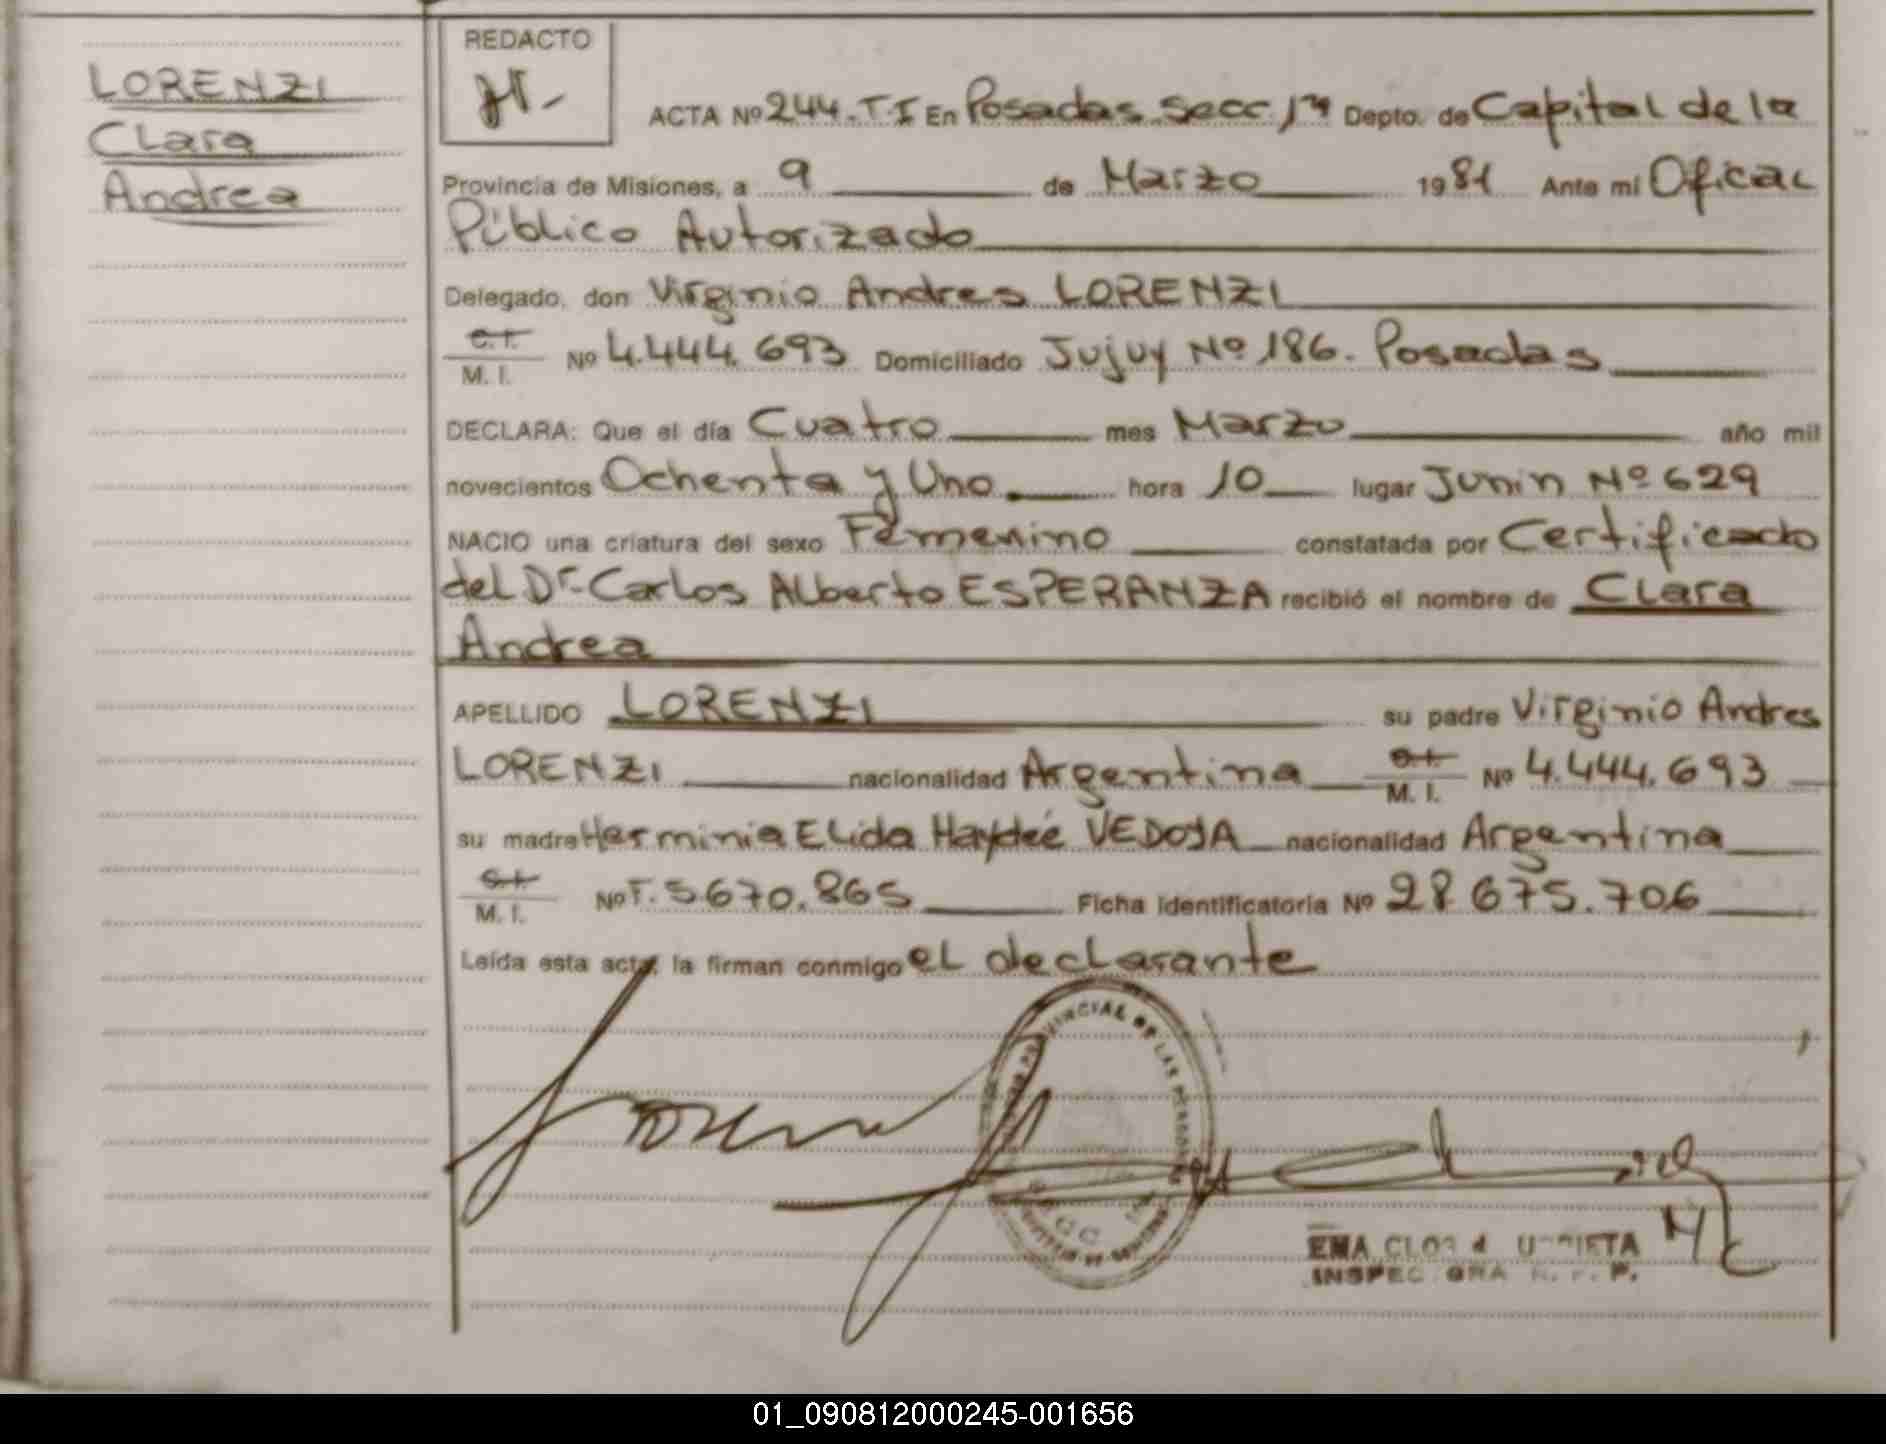 LORENZI
Clara
Andrea
REDACTO
ACTA Nº 244. T. I En Posadas Secc. 1ra Depto. de Capital de la
Provincia de Misiones, a 9 de Marzo 1981 Ante mí Oficial
Público Autorizado
Delegado, don Virginio Andres LORENZI
C.I. M. I. Nº 4.444.693 Domiciliado Jujuy Nº 186. Posadas
DECLARA: Que el día Cuatro mes Marzo año mil
novecientos Ochenta y Uno hora 10 lugar Junin Nº 629
NACIO una criatura del sexo Femenino constatada por Certificado
del Dr. Carlos Alberto ESPERANZA recibió el nombre de Clara
Andrea
APELLIDO LORENZI su padre Virginio Andres
LORENZI nacionalidad Argentina C.I. M. I. Nº 4.444.693
su madre Herminia Elida Haydeé VEDOYA nacionalidad Argentina
C.I. M. I. Nº F. 5.670.865 Ficha identificatoria Nº 28.675.706
Leída esta acta, la firman conmigo el declarante
PROVINCIAL DE LAS PERSONAS
SECC.
EMA
R. P. P.
01_090812000245-001656